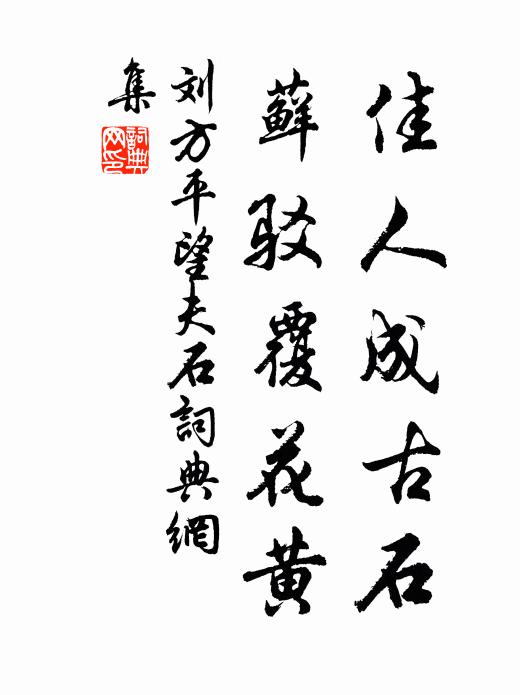 佳人成古石
蘚駁覆花黄
刘方平望夫石詞典網
集
詞典
网印